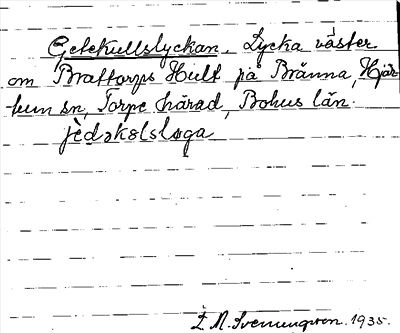 Getekullslyckan. Lycka väster
om Brattorps Hult på Bränna, Hjär-
tum sn, Torpe härad, Bohus län.
jèdəkɵlsløga
L M. Svenungsson. 1935.